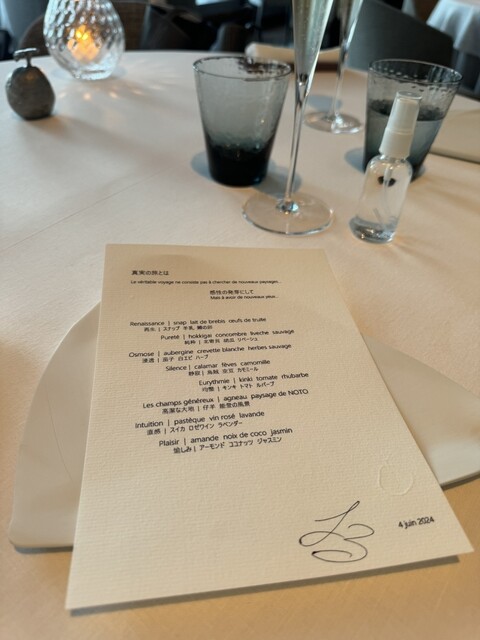 真実の旅とは
Le véritable voyage ne consiste pas à chercher de nouveaux paysages...
感性の発芽にして
Mais à avoir de nouveaux yeux...
Renaissance | snap lait de brebis oeufs de truite
再生 | スナップ 羊乳 鱒の卵
Pureté | hokkigai concombre liveche sauvage
純粋 | 北寄貝 胡瓜 リベージュ
Osmose | aubergine crevette blanche herbes sauvage
浸透 | 茄子 白エビ ハーブ
Silence | calamar fèves camomille
静寂 | 烏賊 空豆 カモミール
Eurythmie | kinki tomate rhubarbe
均整 | キンキ トマト ルバーブ
Les champs généreux | agneau paysage de NOTO
高潔な大地 | 仔羊 能登の風景
Intuition | pastèque vin rosé lavande
直感 | スイカ ロゼワイン ラベンダー
Plaisir | amande noix de coco jasmin
愉しみ | アーモンド ココナッツ ジャスミン
4 juin 2024